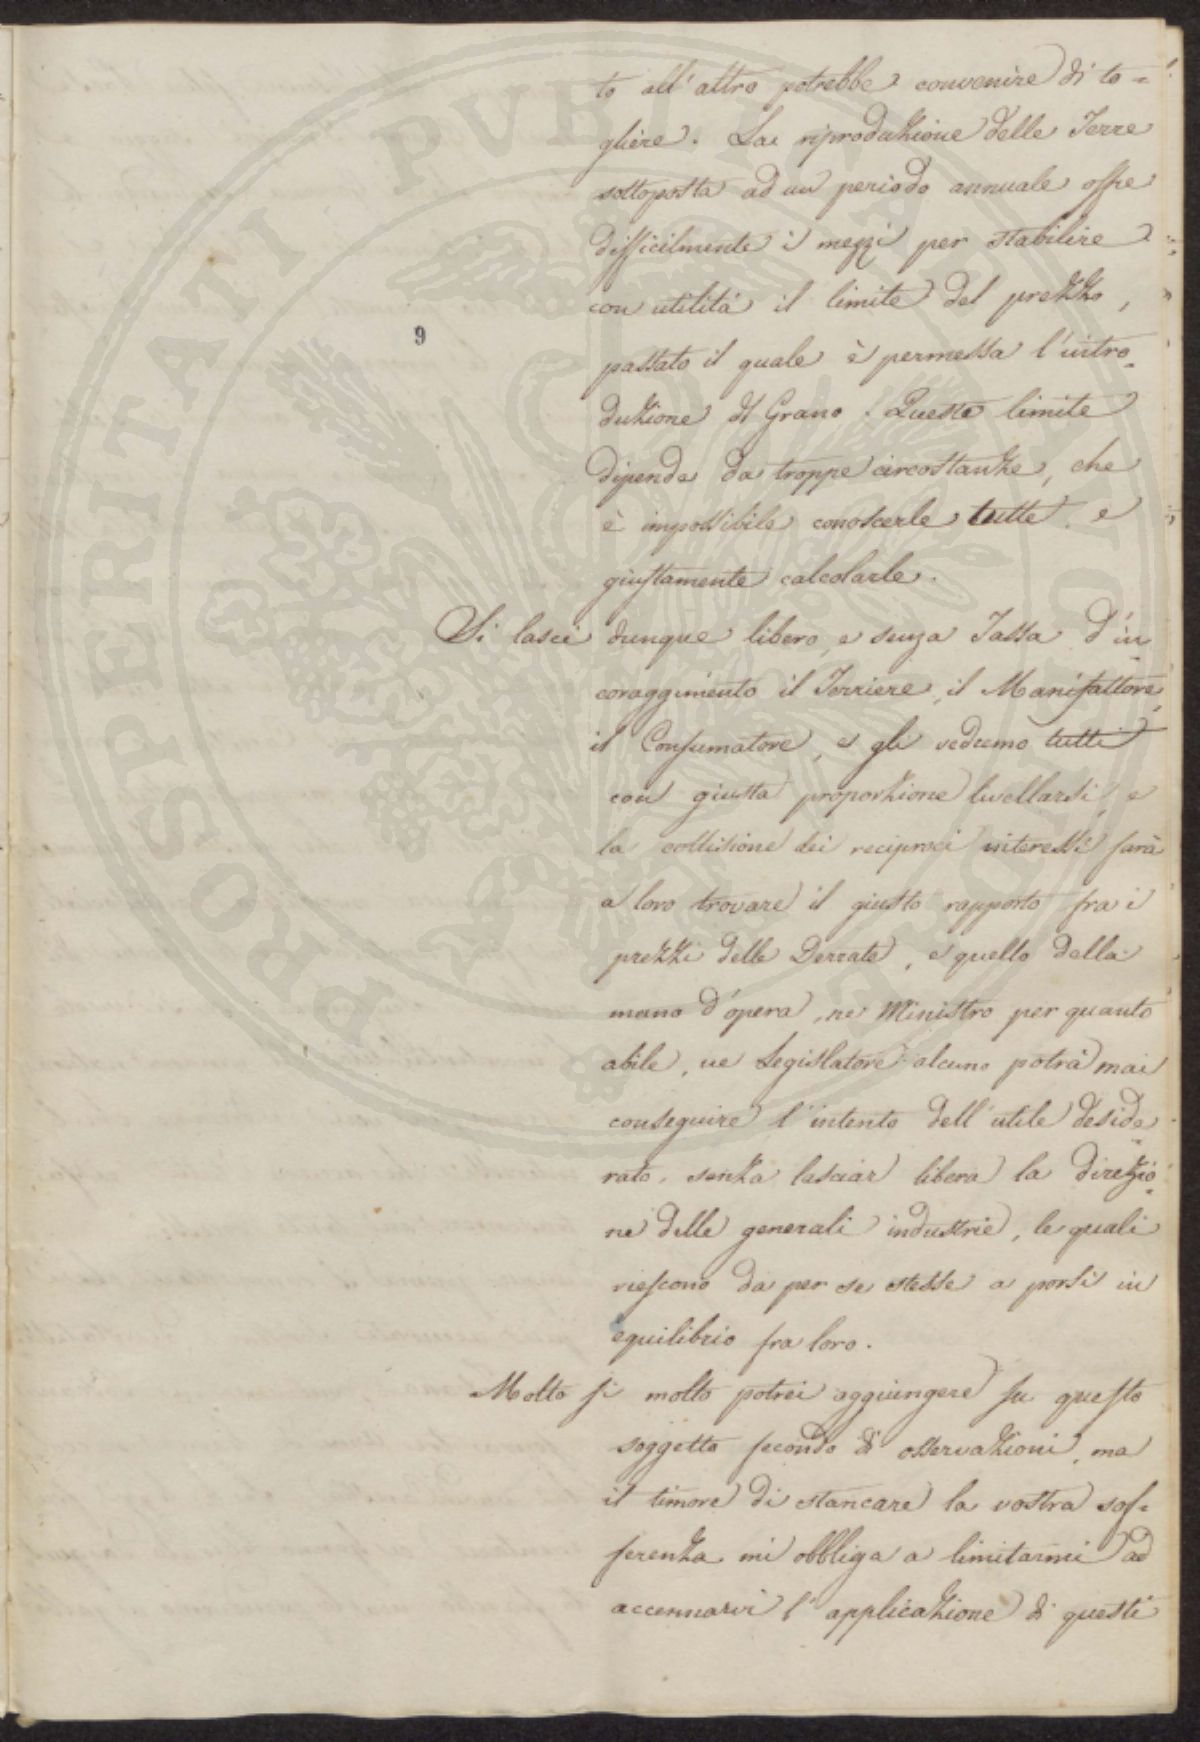 to all' altro potrebbe convenire di to=
gliere. La riproduzione delle Terre
sottoposta ad un periodo annuale offre
difficilmente i mezzi per stabilire
con utilità il limite del prezzo,
9
passato il quale è permessa l'intro=
duzione di Grano. Questo limite
dipende da troppe circostanze, che
è impossibile conoscerle tutte, e
giustamente calcolarle.
Si lasci dunque libero, e senza Tassa d'in=
coraggimento il Terriere, il Manifattore,
il Consumatore, e gli vedremo tutti
con giusta proporzione livellarsi, e
la collisione dei reciproci interessi farà
a loro trovare il giusto rapporto fra i
prezzi delle Derrate, e quello della
mano d'opera, ne Ministro per quanto
abile, ne Legislatore alcuno potrà mai
conseguire l'intento dell'utile deside=
rato, senza lasciar libera la direzio=
ne delle generali industrie, le quali
riescono da per se stesse a porsi in
equilibrio fra loro.
Molto si molto potrei aggiungere su questo
soggetto fecondo di osservazioni, ma
il timore di stancare la vostra sof=
ferenza mi obbliga a limitarmi ad
accennarvi l'applicazione di questi
PROSPERITATI PUBLICAE AUGENDAE